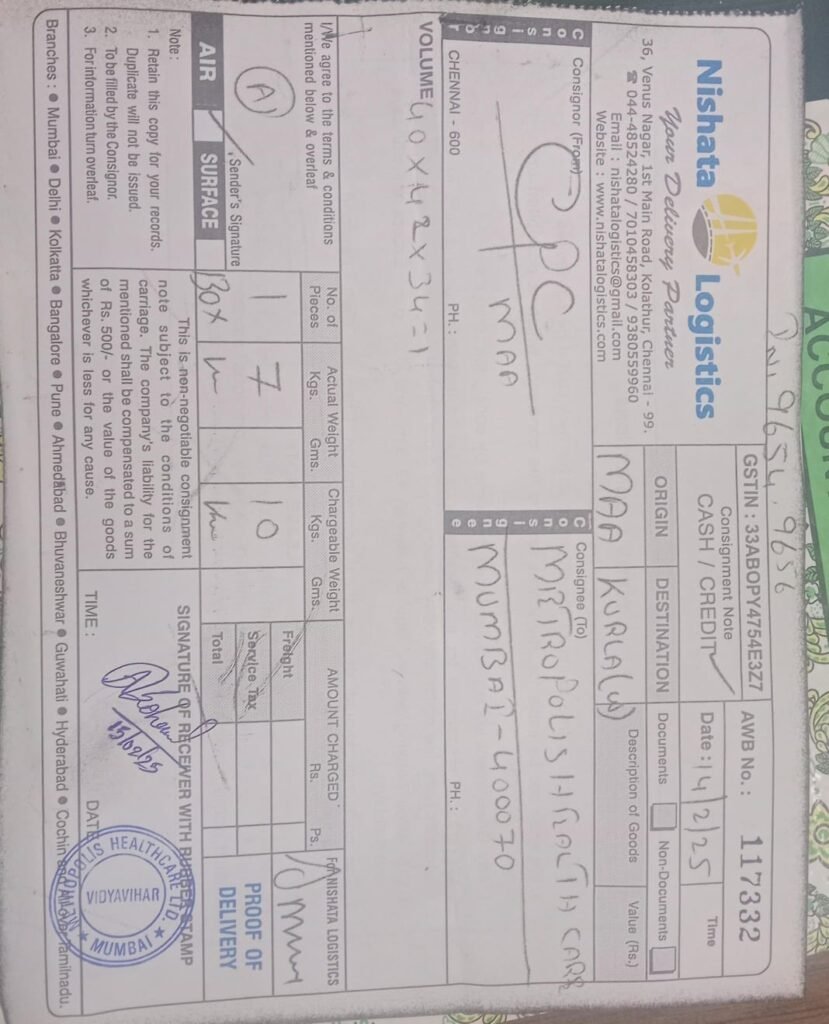 ACCOU
9654, 9656
Nishata Logistics
Your Delivery Partner
36, Venus Nagar, 1st Main Road, Kolathur, Chennai - 99.
☎ 044-48524280 / 7010458303 / 9380559960
Email : nishatalogistics@gmail.com
Website : www.nishatalogistics.com
GSTIN : 33ABOPY4754E3Z7
AWB No. : 117332
Consignment Note
CASH / CREDIT ✓
Date : 14/2/25
Time
ORIGIN
DESTINATION
Documents
Non-Documents
MAA
KURLA(W)
Description of Goods
Value (Rs.)
Consignor
Consignor (From)
CPC
MAA
CHENNAI - 600
PH. :
Consignee
Consignee (To)
METROPOLIS HEALTH CARE
MUMBAI - 400070
PH. :
VOLUME 40 X 42 X 34 = 1
I/We agree to the terms & conditions
mentioned below & overleaf
Sender's Signature
AIR
SURFACE
No. of Pieces
Actual Weight
Kgs. Gms.
Chargeable Weight
Kgs. Gms.
AMOUNT CHARGED
Rs. Ps.
1
7
10
BOX
Freight
Service Tax
Total
For NISHATA LOGISTICS
PROOF OF
DELIVERY
Note :
1. Retain this copy for your records.
Duplicate will not be issued.
2. To be filled by the Consignor.
3. For information turn overleaf.
This is non-negotiable consignment
note subject to the conditions of
carriage. The company's liability for the
mentioned shall be compensated to a sum
of Rs. 500/- or the value of the goods
whichever is less for any cause.
SIGNATURE OF RECEIVER WITH RUBBER STAMP
15/02/25
TIME :
DATE
METROPOLIS HEALTHCARE LTD.
VIDYAVIHAR
★ MUMBAI ★
Branches : ● Mumbai ● Delhi ● Kolkatta ● Bangalore ● Pune ● Ahmedabad ● Bhuvaneshwar ● Guwahati ● Hyderabad ● Cochin and All over Tamilnadu.